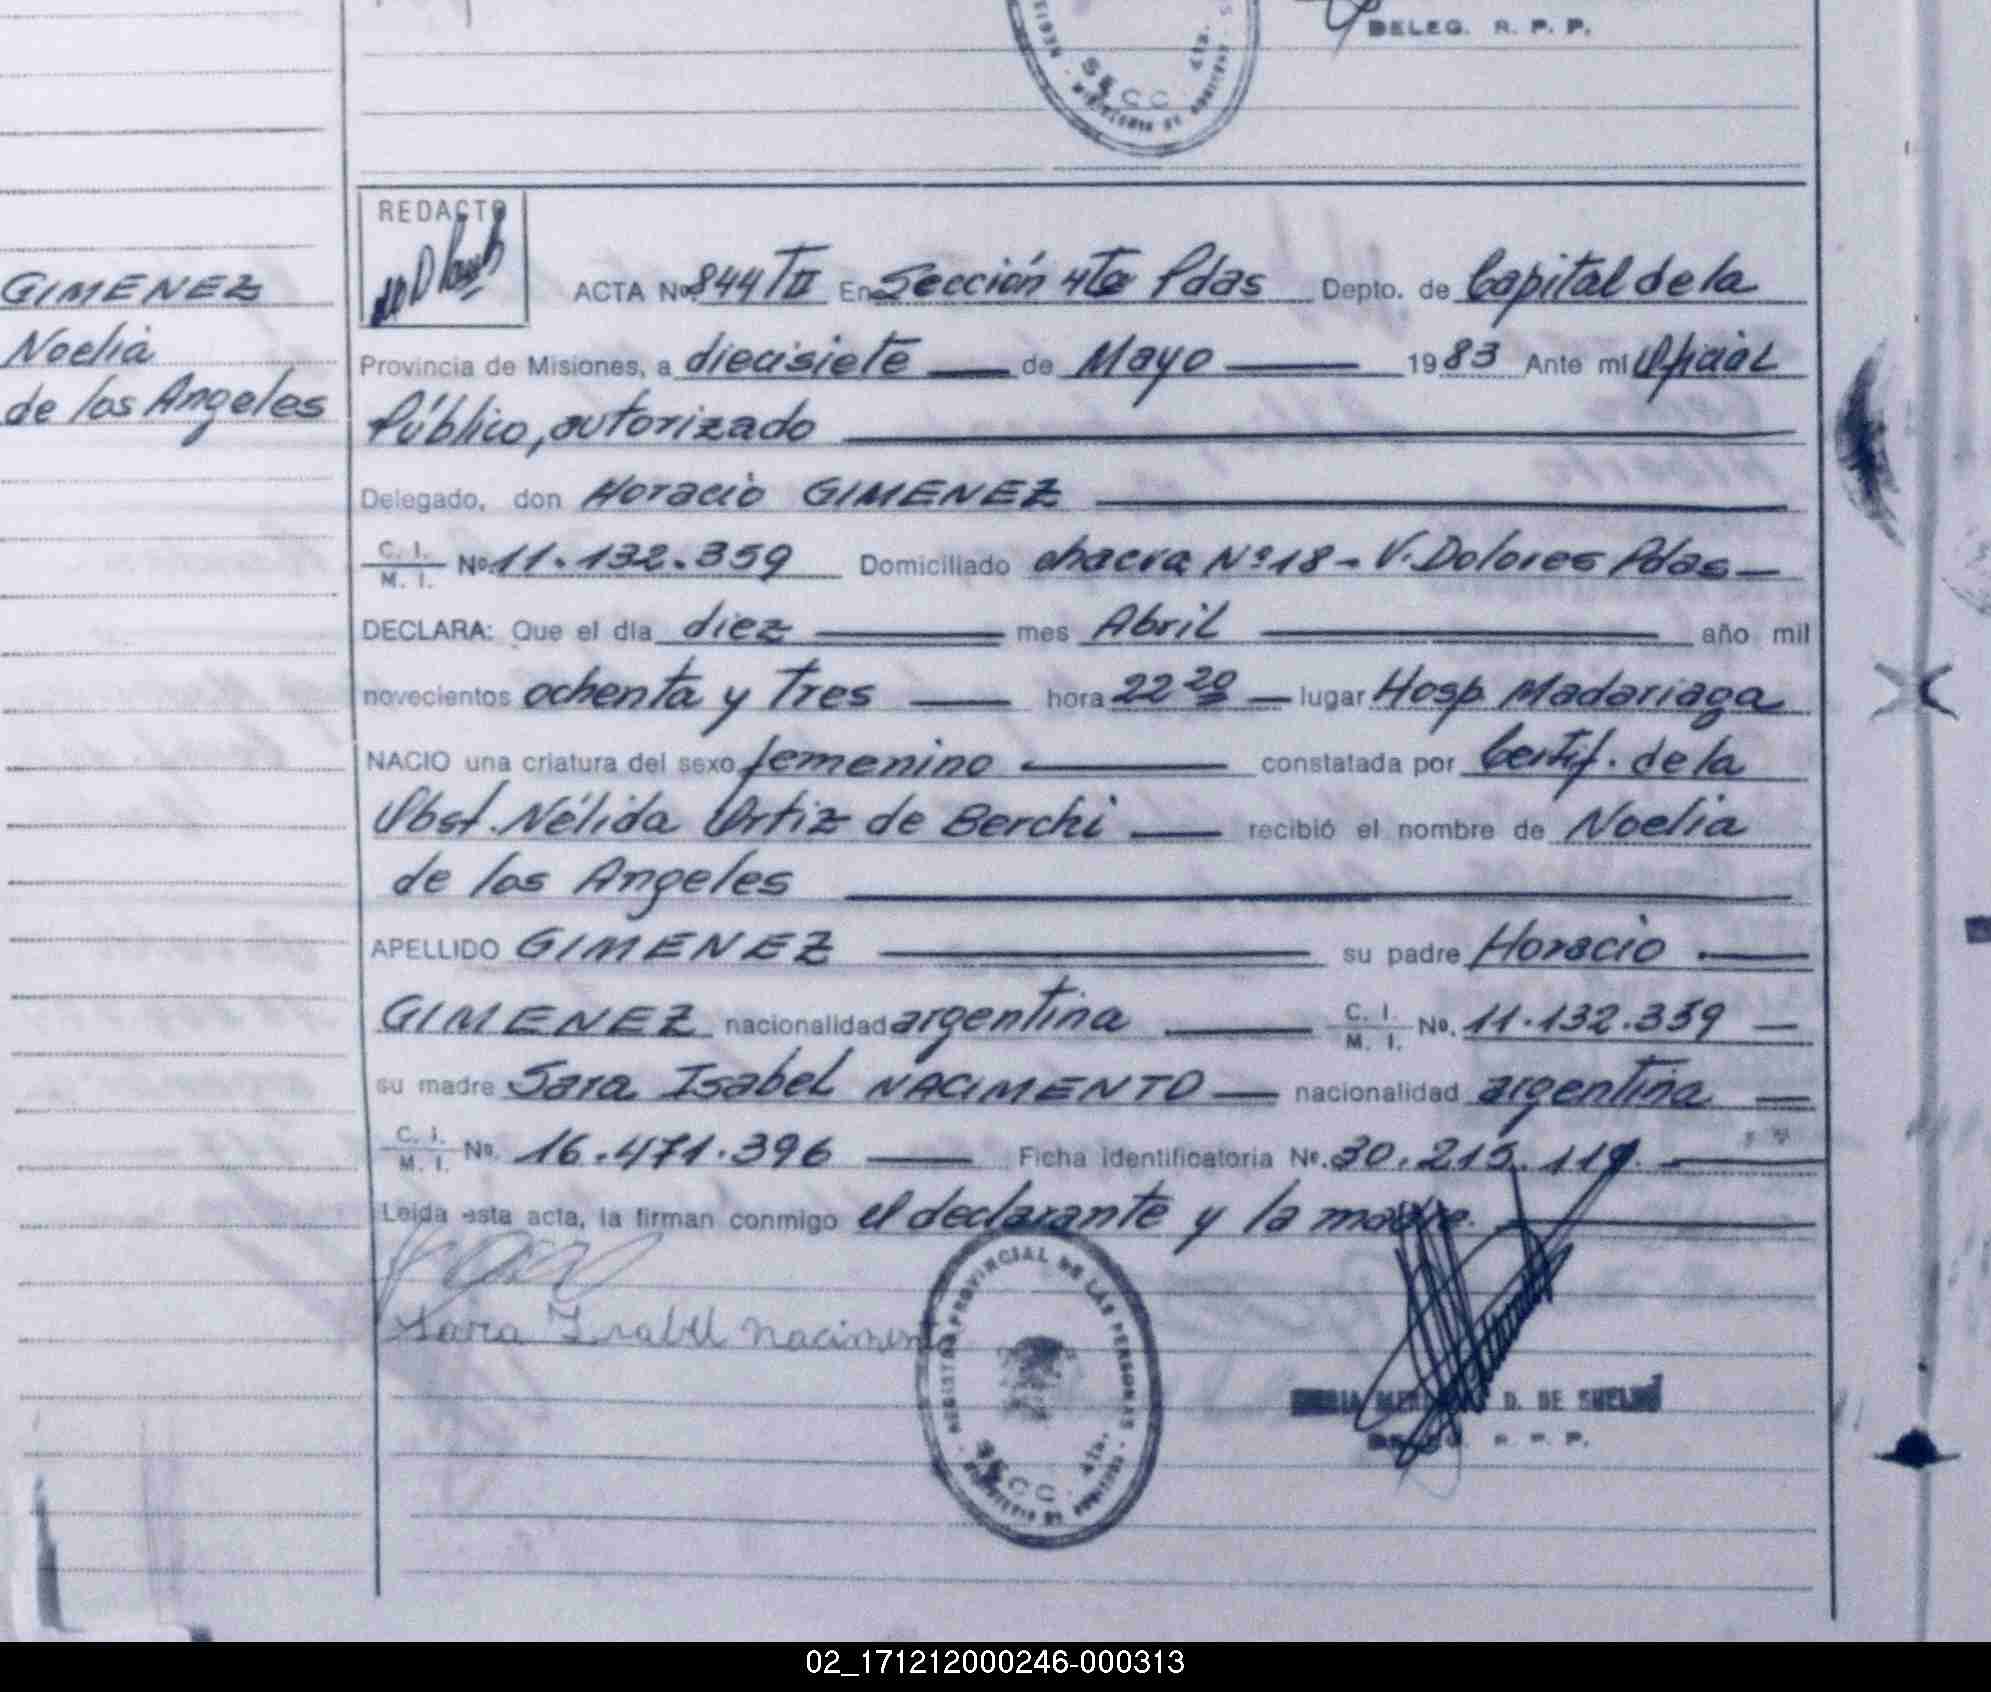 DELEG. R. P. P.
SECC 4ta.
REDACTO
GIMENEZ
Noelia
de los Angeles
ACTA Nº 844/TII En Sección 4ta Pdas Depto. de Capital de la
Provincia de Misiones, a diecisiete de Mayo 1983 Ante mi Oficial
Público, autorizado
Delegado, don Horacio GIMENEZ
C. I. M. I. Nº 11.132.359 Domiciliado chacra Nº 18 - V. Dolores Pdas
DECLARA: Que el día diez mes Abril año mil
novecientos ochenta y tres hora 22 20 lugar Hosp Madariaga
NACIO una criatura del sexo femenino constatada por Certif. de la
Obst. Nélida Ortiz de Berchi recibió el nombre de Noelia
de los Angeles
APELLIDO GIMENEZ su padre Horacio
GIMENEZ nacionalidad argentina C. I. M. I. No. 11.132.359
su madre Sara Isabel NACIMENTO nacionalidad argentina
C. I. M. I. No. 16.471.396 Ficha identificatoria Nº. 30.215.119
Leída esta acta, la firman conmigo el declarante y la madre.
Sara Isabel Naciment
REGISTRO PROVINCIAL DE LAS PERSONAS
SECC 4ta.
D. DE
R. P. P.
02_171212000246-000313